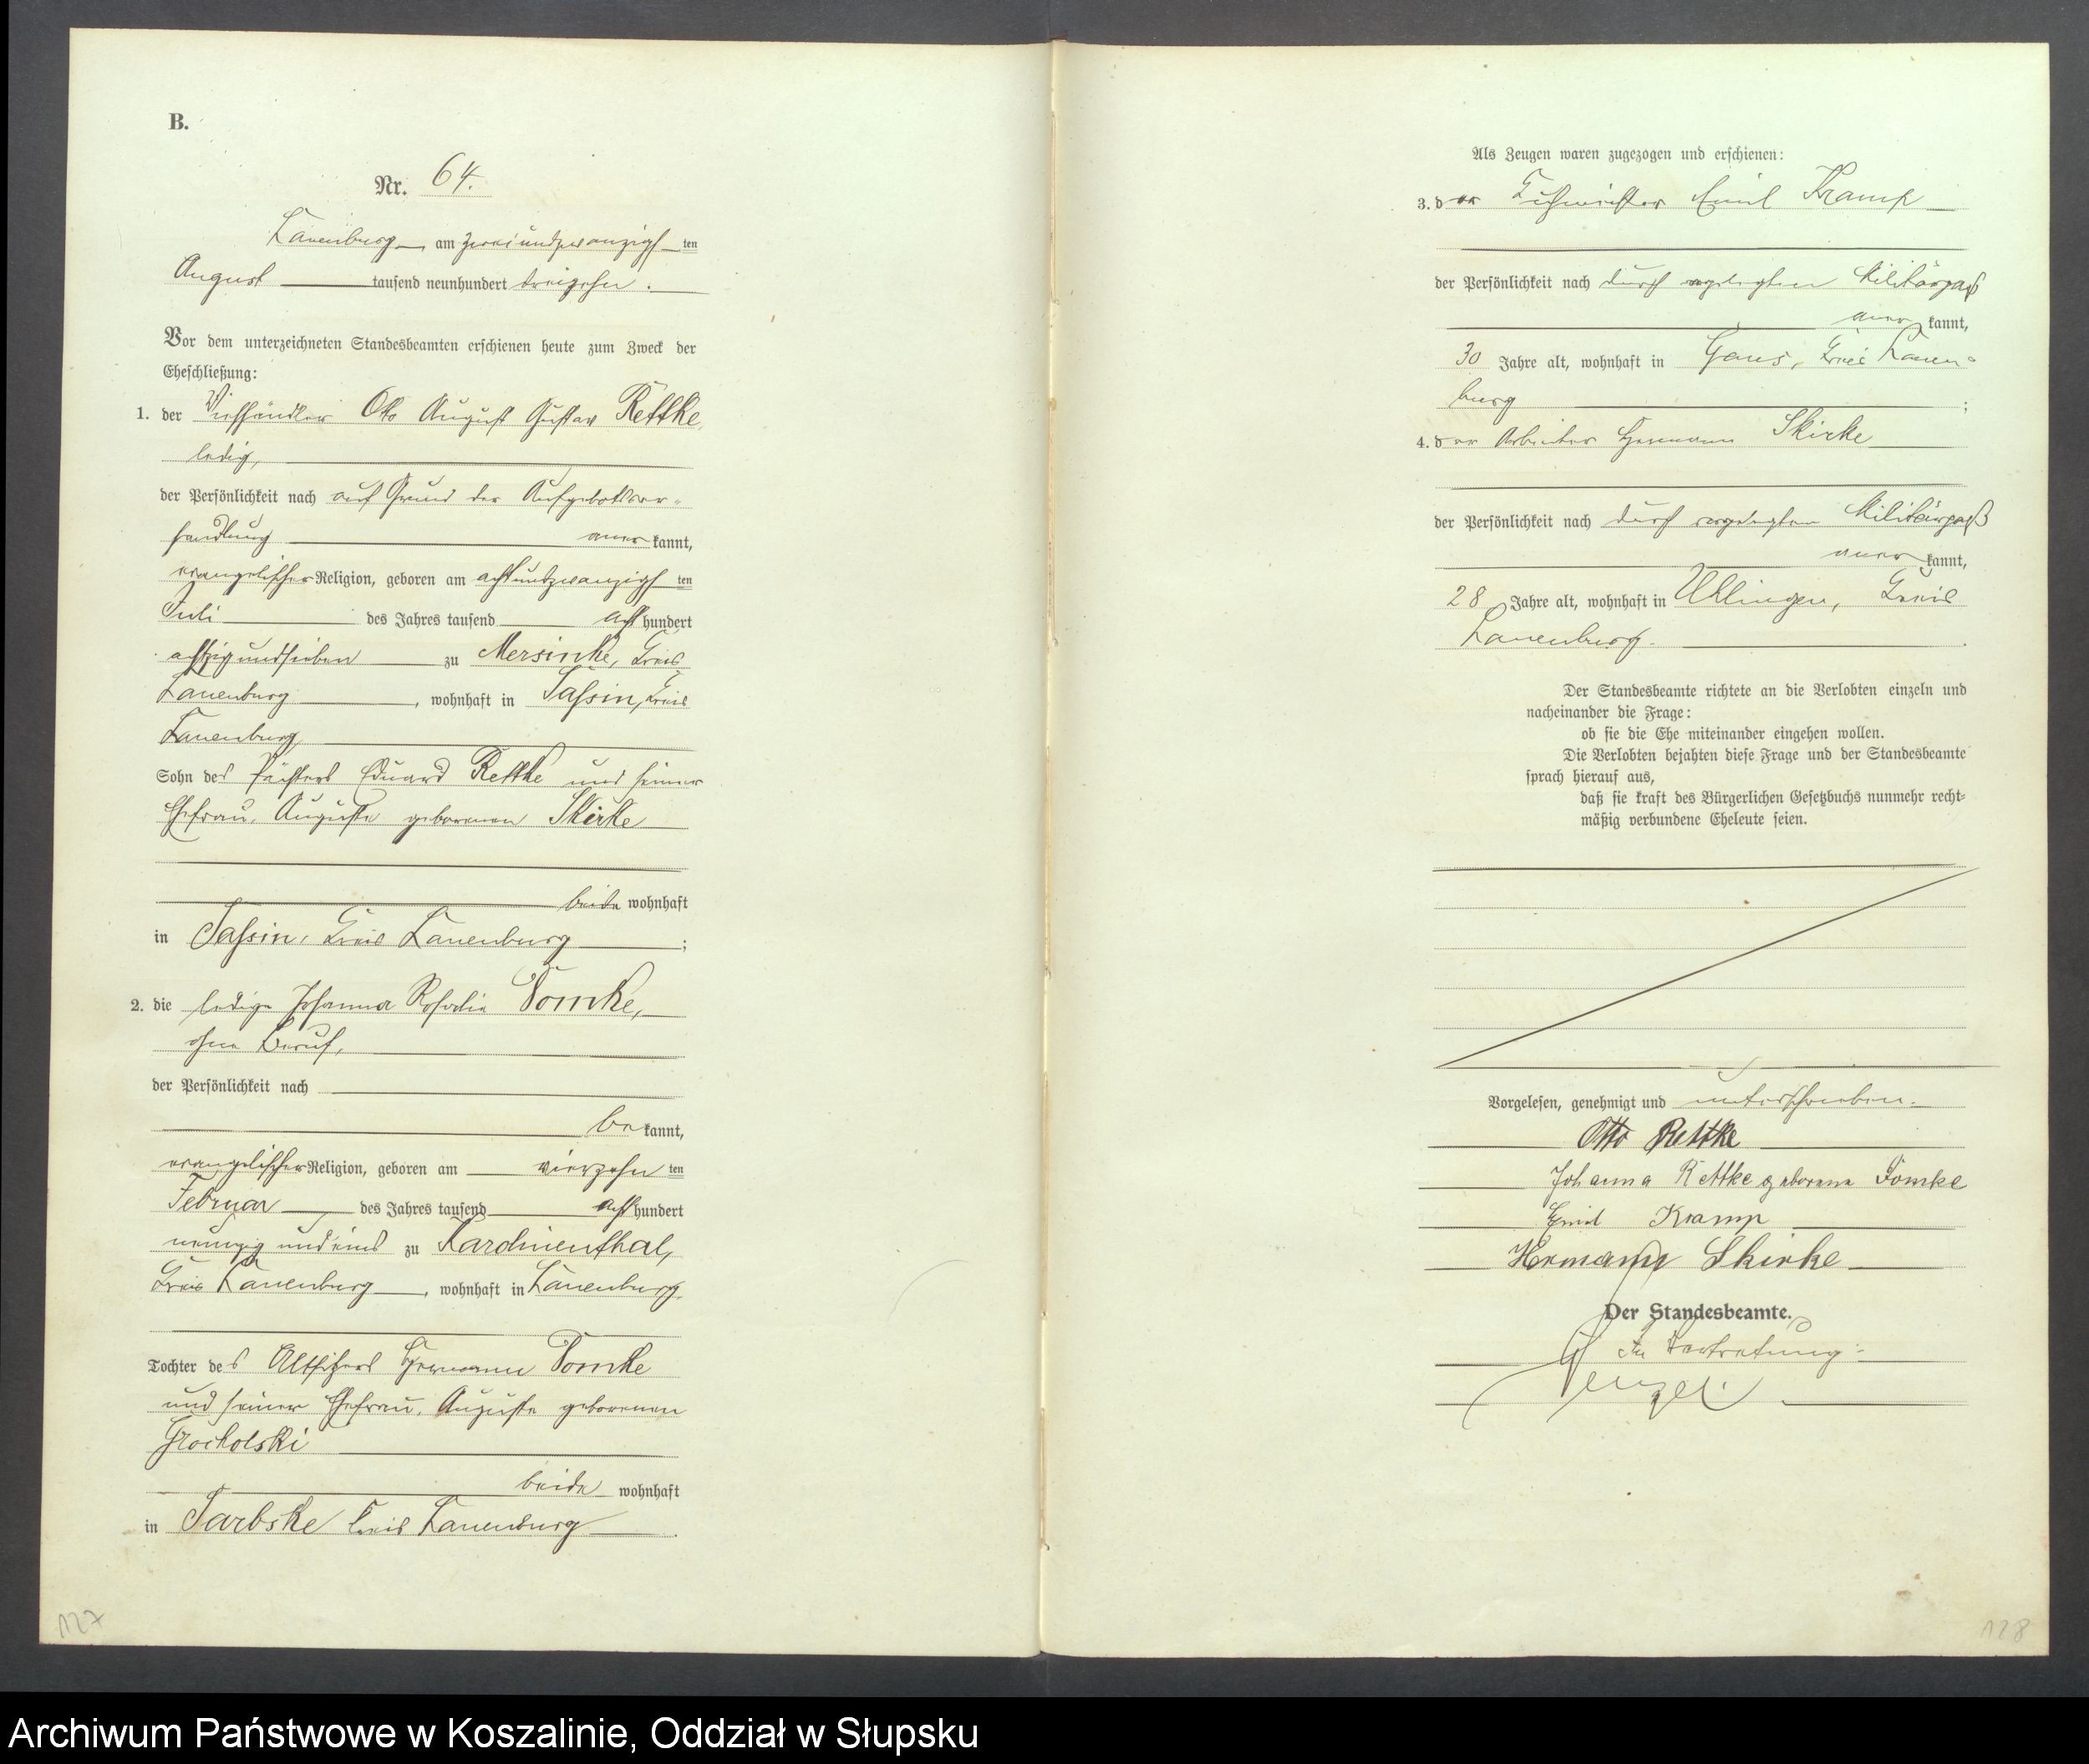 B.
Nr. 64.
Lauenburg am zweiundzwanzigsten
August tausend neunhundert dreizehn.
Vor dem unterzeichneten Standesbeamten erschienen heute zum Zweck der
Eheschließung:
1. der Viehhändler Otto August Gustav Rettke,
ledig,
der Persönlichkeit nach auf Grund der Aufgebotsver-
handlung anerkannt,
evangelischer Religion, geboren am achtundzwanzigsten
Juli des Jahres tausend achthundert
achtzigundsieben zu Mersinke, Kreis
Lauenburg, wohnhaft in Sassin, Kreis
Lauenburg,
Sohn des Pächters Eduard Rettke und seiner
Ehefrau, Auguste geborenen Skirke
beide wohnhaft
in Sassin, Kreis Lauenburg;
2. die ledige Johanna Rosalie Domke,
ohne Beruf,
der Persönlichkeit nach
bekannt,
evangelischer Religion, geboren am vierzehnten
Februar des Jahres tausend achthundert
neunzig und eins zu Karolinenthal,
Kreis Lauenburg, wohnhaft in Lauenburg,
Tochter des Altsitzers Hermann Domke
und seiner Ehefrau, Auguste geborenen
Grocholski
beide wohnhaft
in Sarbske Kreis Lauenburg.
Als Zeugen waren zugezogen und erschienen:
3. der Emil Kramp
der Persönlichkeit nach durch vorgelegten Militärpaß
anerkannt,
30 Jahre alt, wohnhaft in Gans, Kreis Lauen-
burg;
4. der Arbeiter Hermann Skirke
der Persönlichkeit nach durch vorgelegten Militärpaß
anerkannt,
28 Jahre alt, wohnhaft in Uhlingen, Kreis
Lauenburg.
Der Standesbeamte richtete an die Verlobten einzeln und
nacheinander die Frage:
ob sie die Ehe miteinander eingehen wollen.
Die Verlobten bejahten diese Frage und der Standesbeamte
sprach hierauf aus,
daß sie kraft des Bürgerlichen Gesetzbuchs nunmehr recht-
mäßig verbundene Eheleute seien.
Vorgelesen, genehmigt und unterschrieben.
Otto Rettke
Johanna Rettke geborene Domke
Emil Kramp
Hermann Skirke
Der Standesbeamte.
In Vertretung:
127
128
Archiwum Państwowe w Koszalinie, Oddział w Słupsku